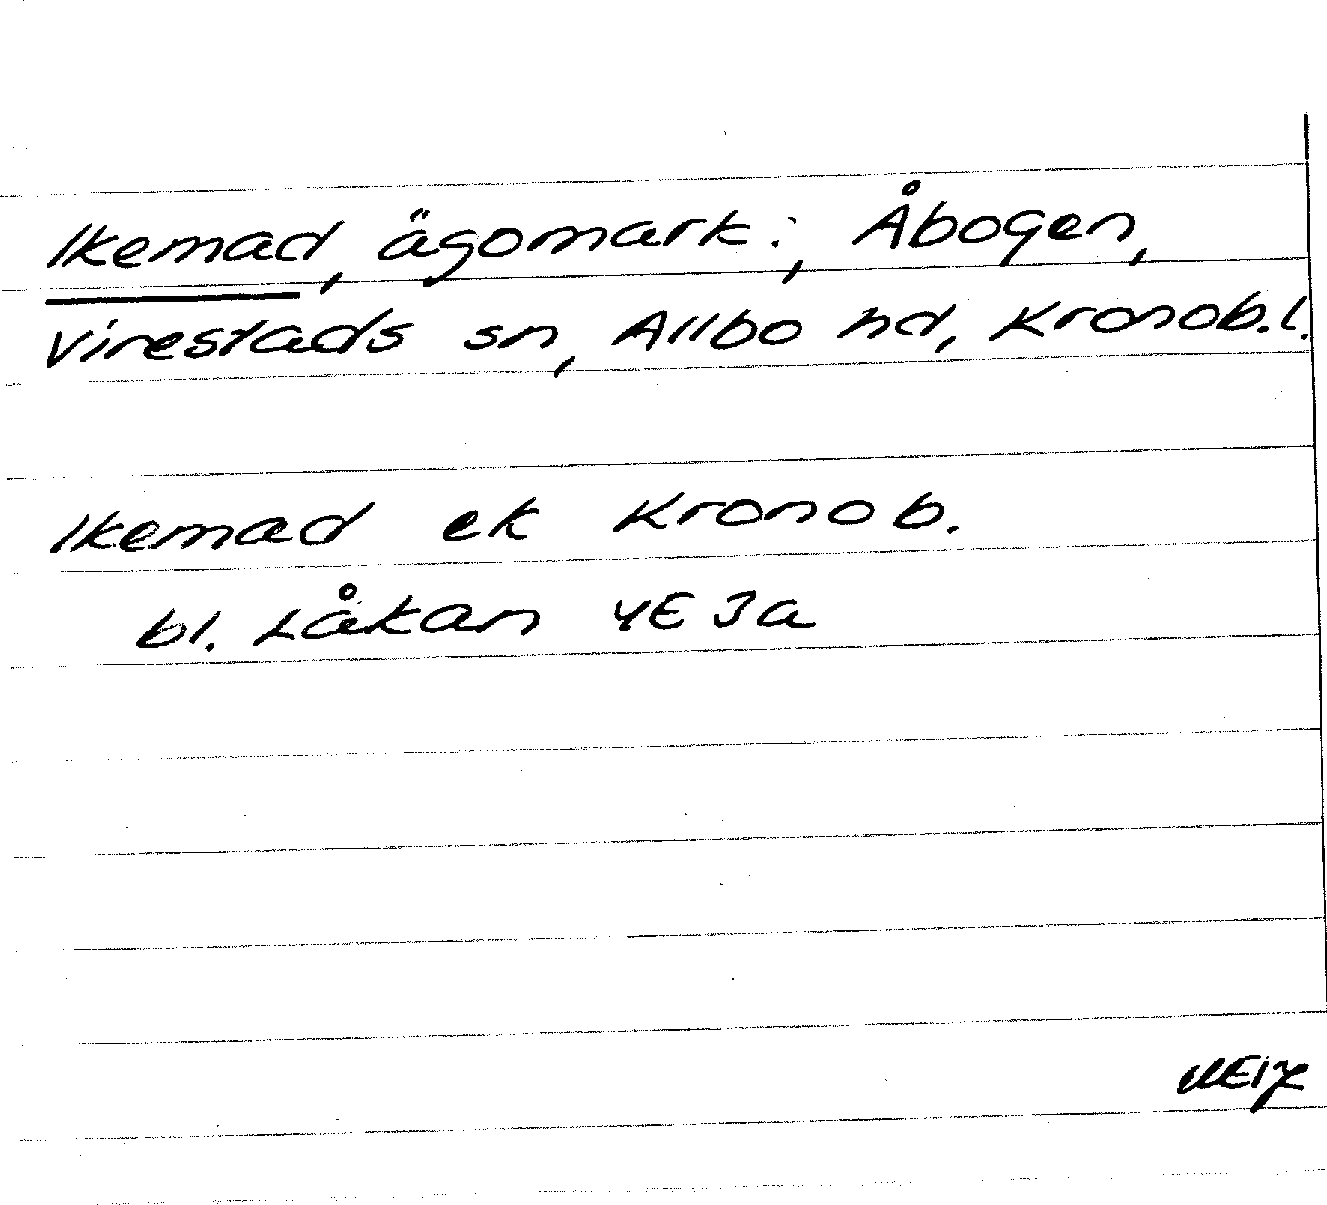 Ikemad, ägomark; Åbogen,
Virestads sn, Allbo hd, Kronob.l.
Ikemad ek Kronob.
bl. Låkan 4E 3a